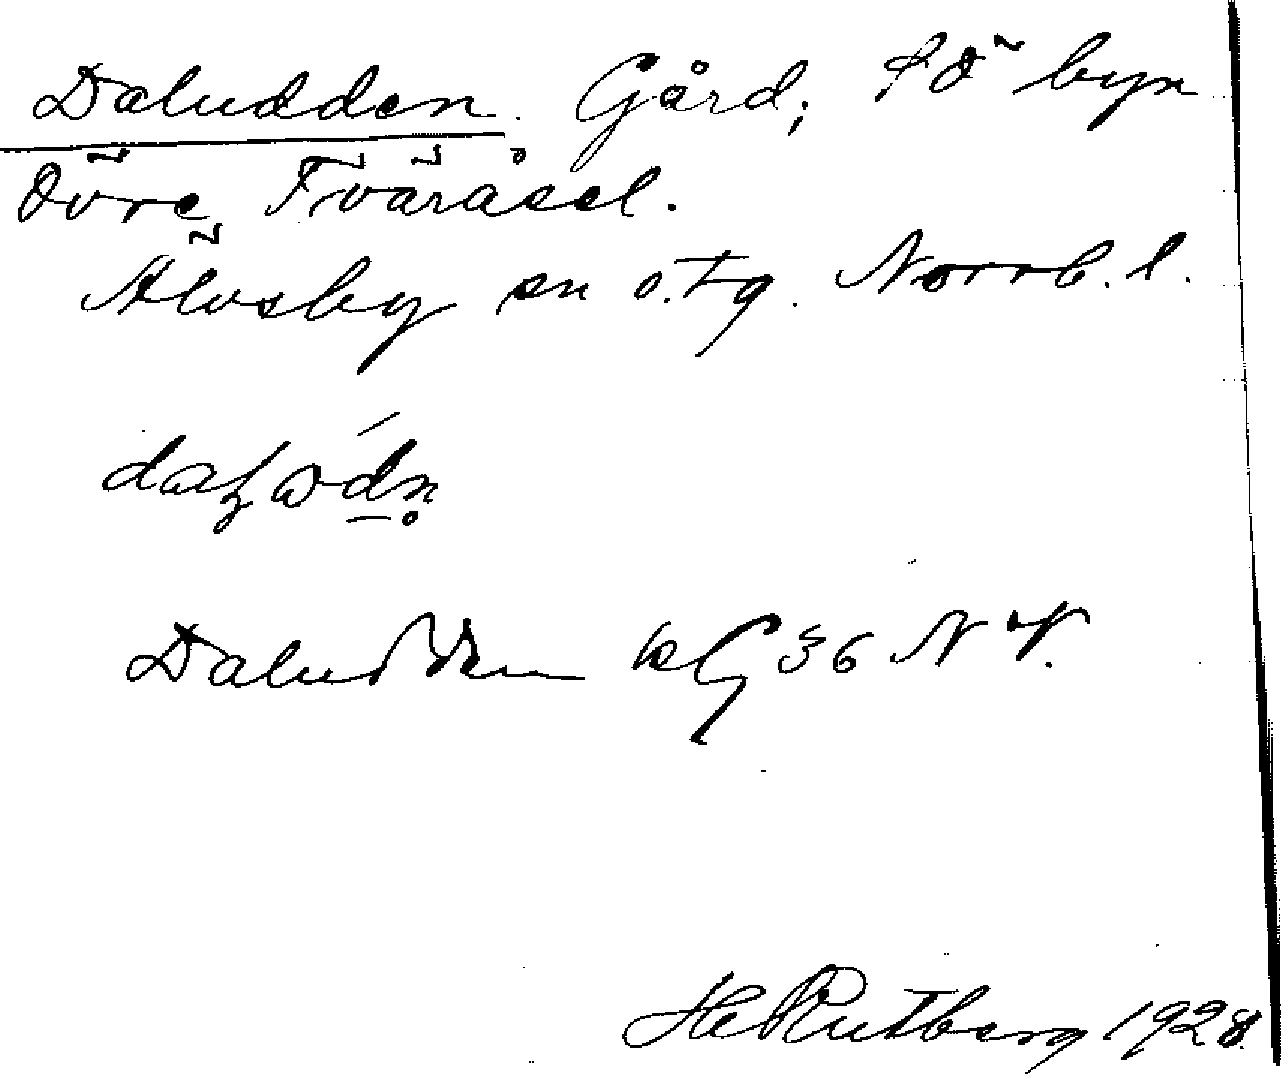 Daludden. Gård; SO byn
Övre Tväråsel.
Älvsby sn o. tg. Norrb. l.
Daludden kG 36 NV.
H Rutberg 1928